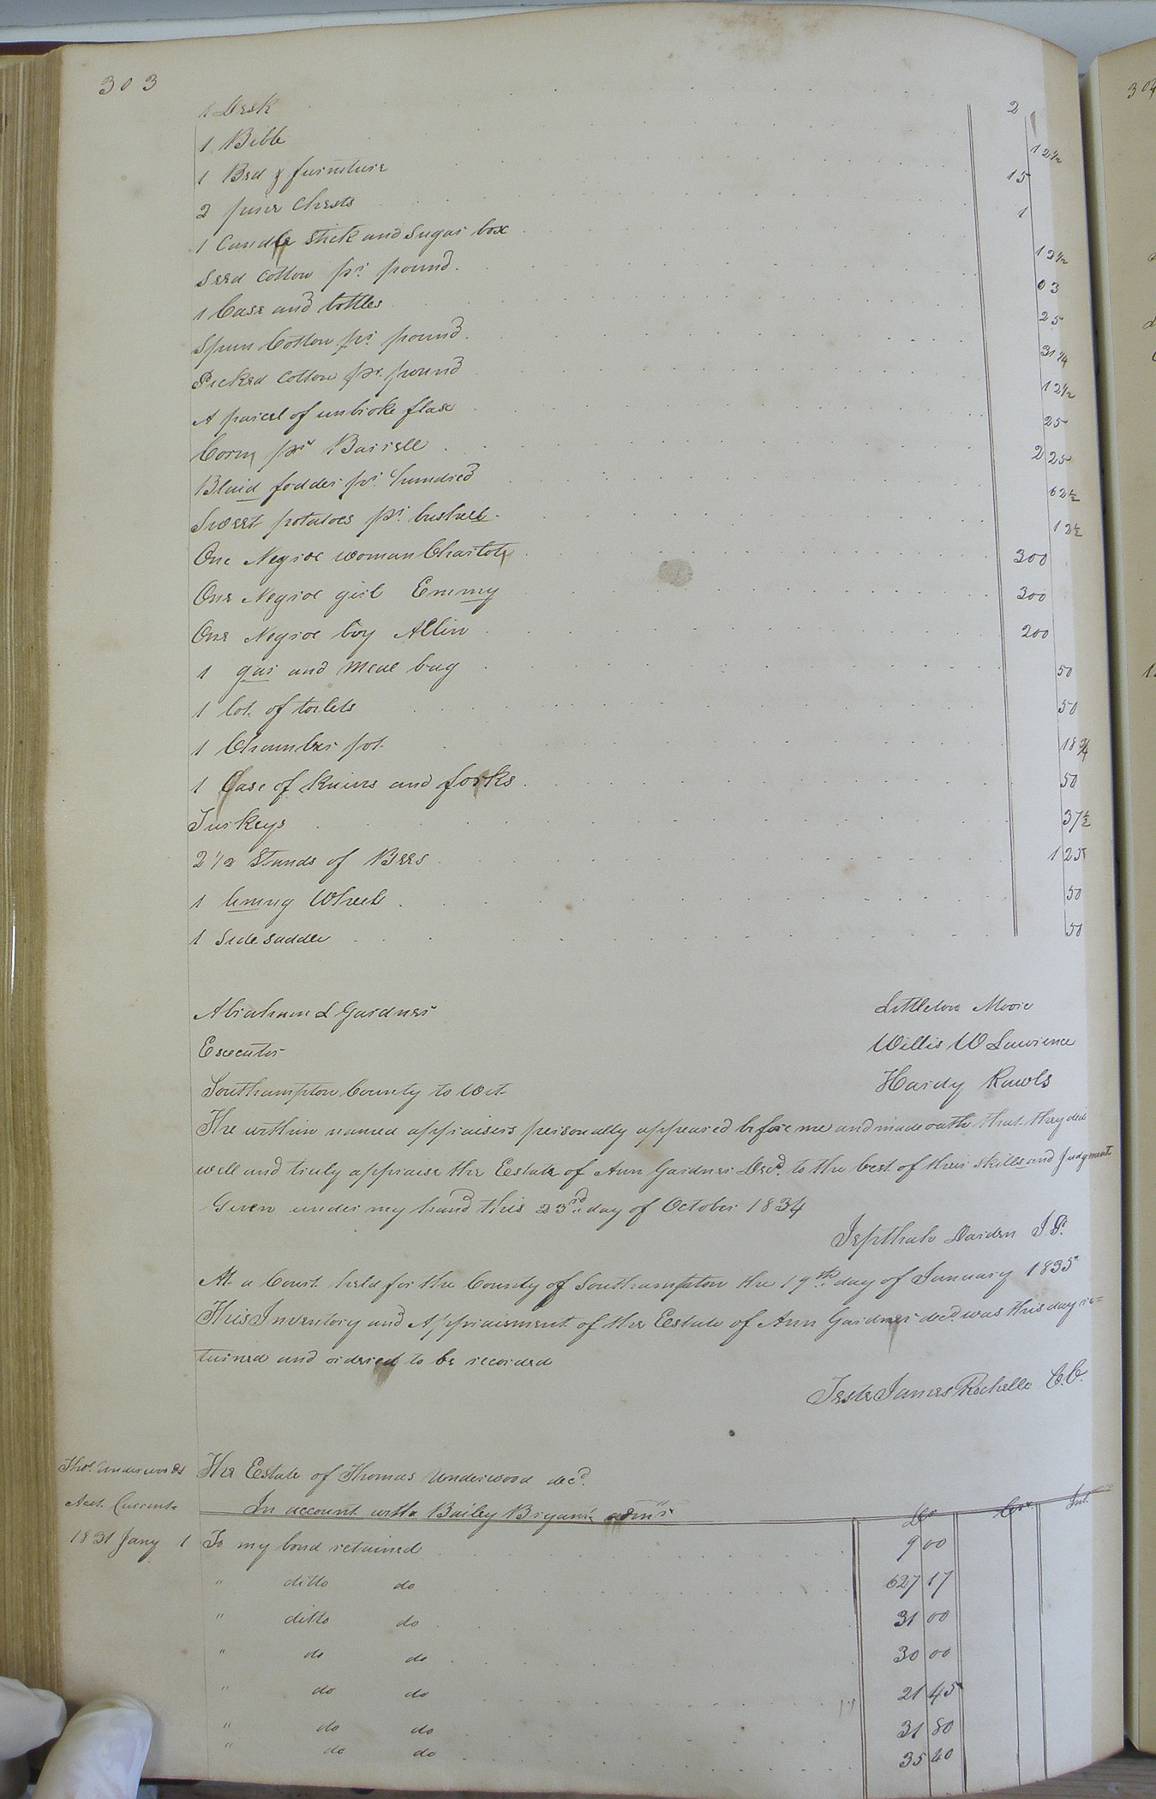 303
1 Desk 2
1 Bible 12½
1 Bed & furniture 15
2 pine Chests 1
1 Candle stick and Sugar box 12½
Seed Cotton pr. pound. 03
1 Case and bottles 25
Spun Cotton pr. pound. 31¼
Picked Cotton pr. pound 12½
A parcel of unbroke flax 25
Corn pr Barrell 2 25
Blaid fodder pr. hundred 62½
Sweet potatoes pr. bushell 12½
One Negroe woman Charlott 300
One Negroe girl Emmy 300
One Negroe boy Allin 200
1 gai and meal bag 50
1 lot of toilets 50
1 Chamber pot. 18¾
1 Case of knives and forks. 50
Turkeys 37½
2½ Stands of Bees 1 25
1 Wheel 50
1 Side saddle 50
Abraham L Gardner Littleton Moore
Executor Willis W Lawrence
Southampton County to Wit Hardy Rawls
The within named appraisers personally appeared before me and made oath that they did
well and truly appraise the Estate of Ann Gardner Decd. to the best of their skills and Judgment
Given under my hand this 23rd day of October 1834
Jepthah Darden J P.
At a Court held for the County of Southampton the 19th day of January 1835
This Inventory and Appraisement of the Estate of Ann Gardner decd. was this day re=
turned and ordered to be recorded
Teste James Rochelle C.C.
Thos. Underwoods The Estate of Thomas Underwood decd.
Acct. Current In account with Bailey Bryant admr. Dr Cr. Int.
1831 Jany 1 To my bond retained 9 00
" ditto do 627 17
" ditto do 31 00
" do do 30 00
" do do 21 45
" do do 31 80
" do do 35 40
304